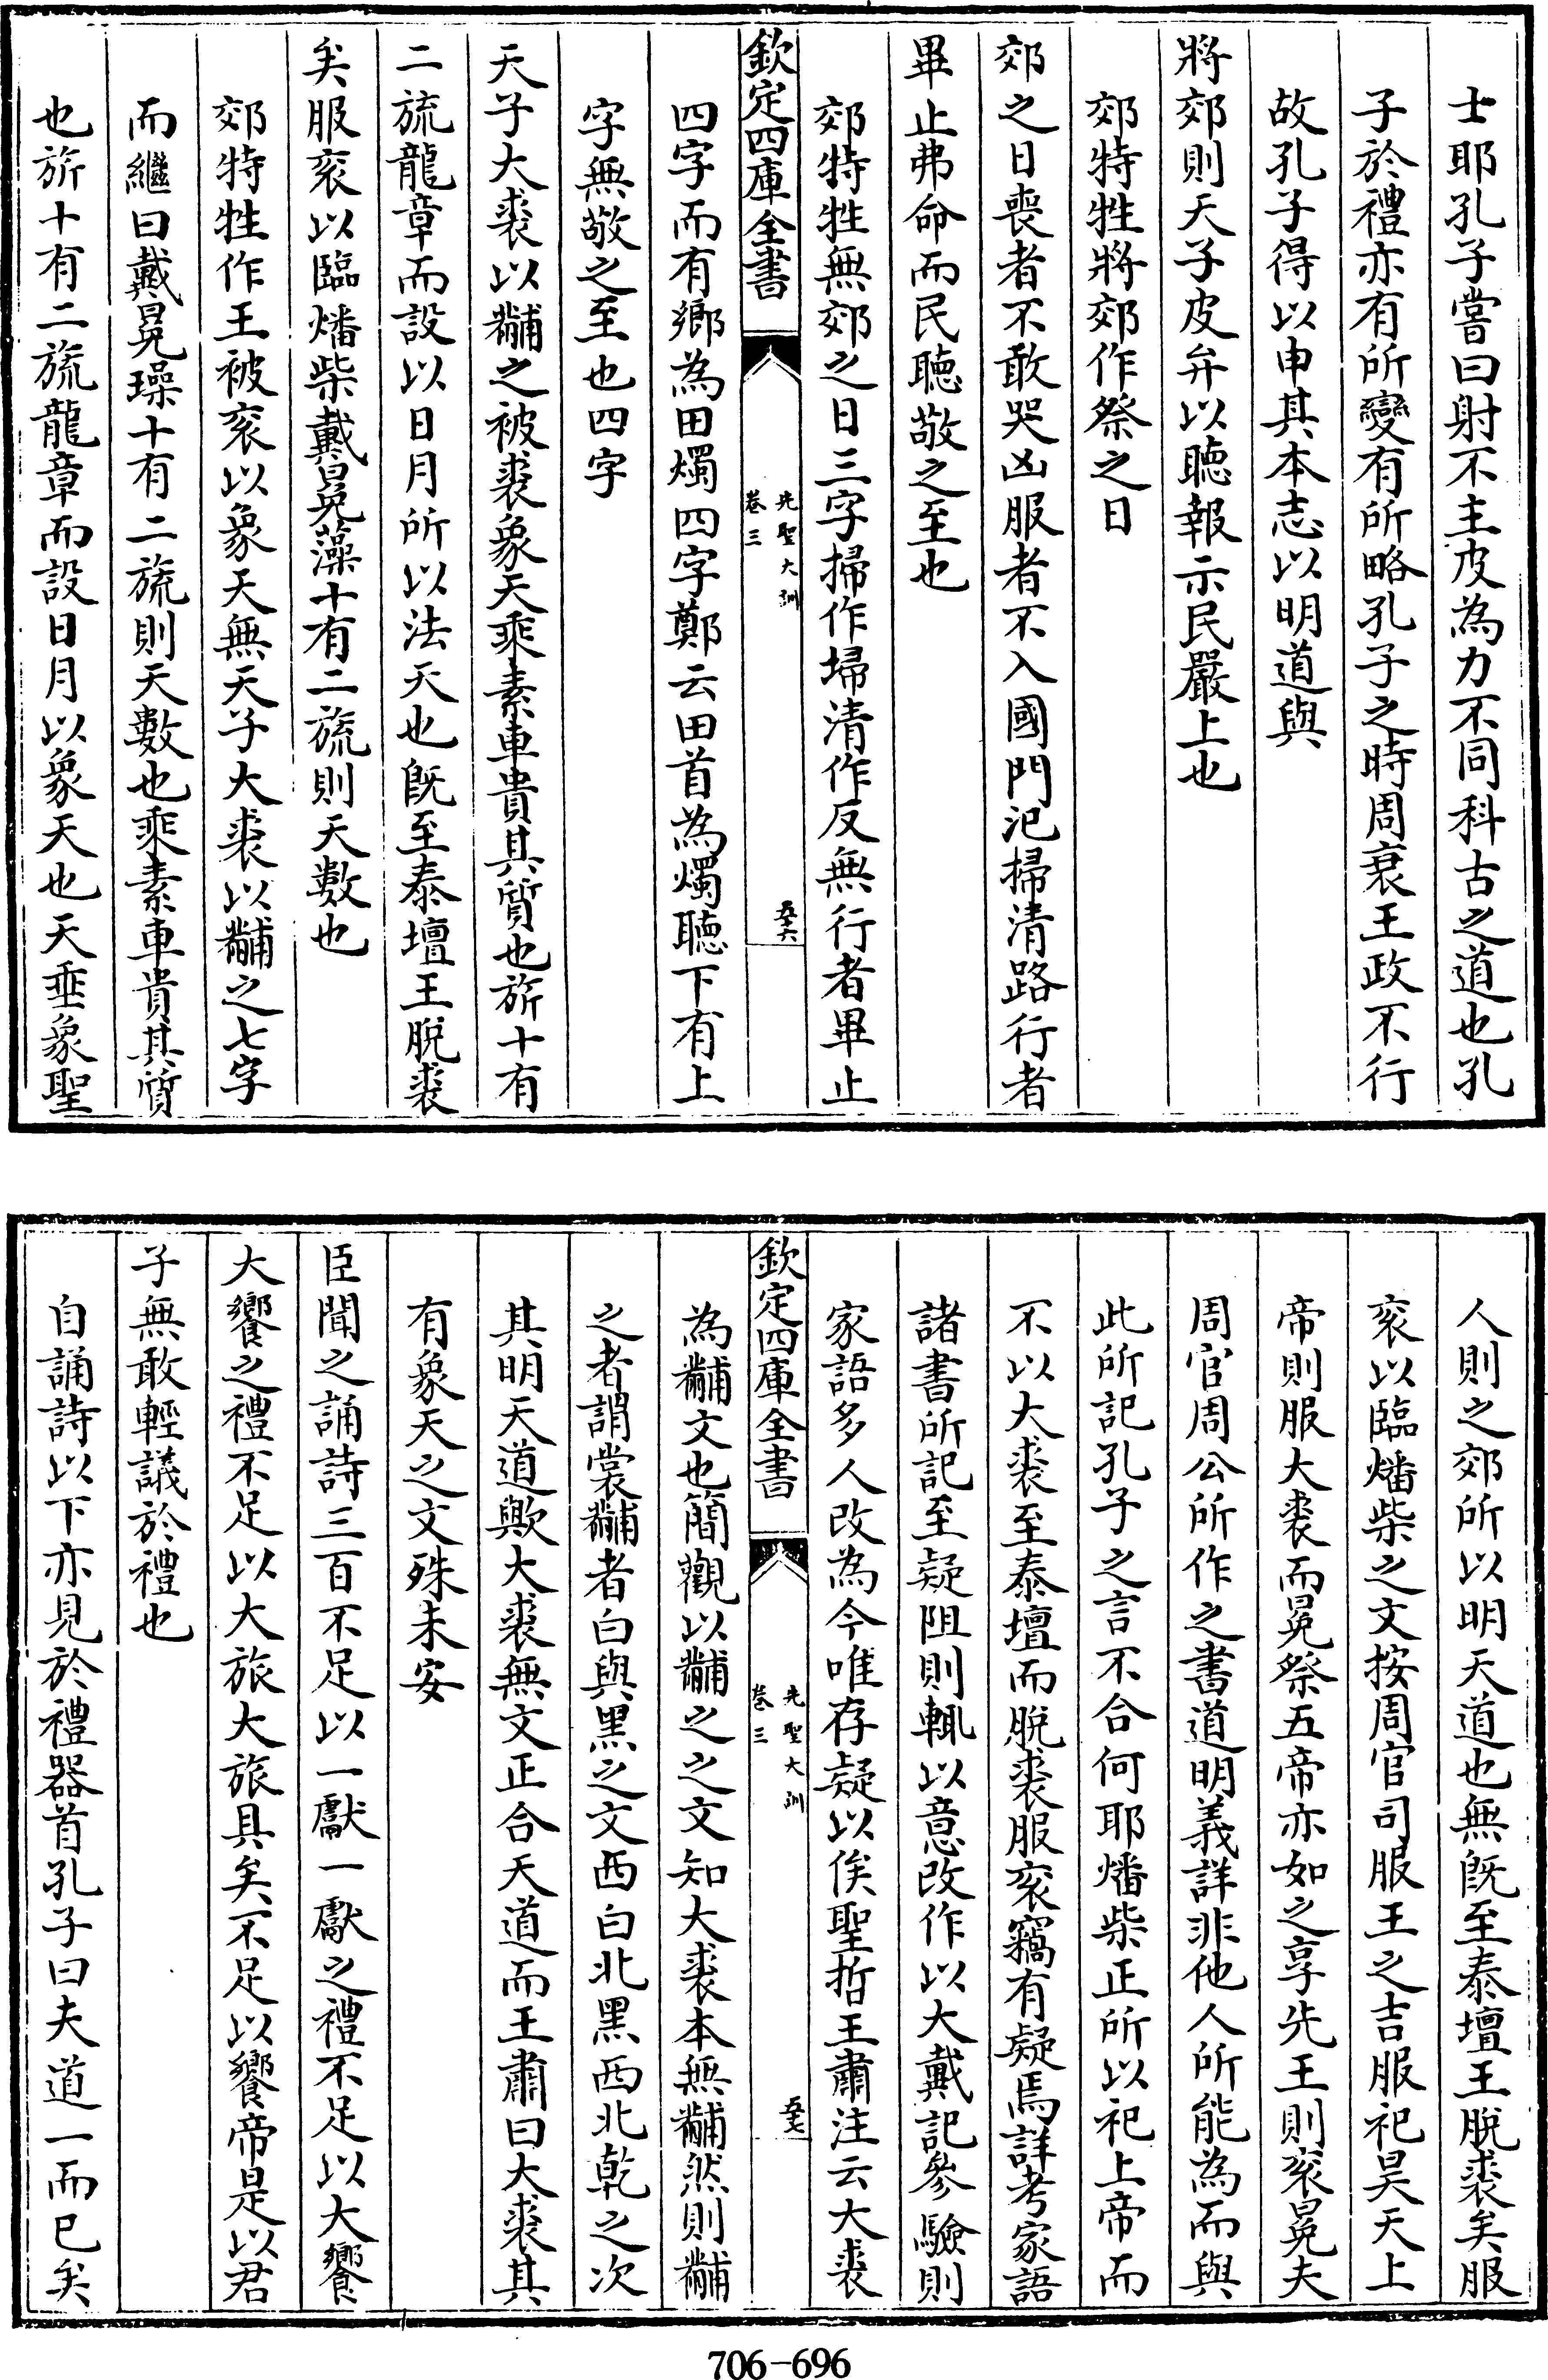 士耶孔子嘗曰射不主皮為力不同科古之道也孔
子於禮亦有所變有所略孔子之時周衰王政不行
故孔子得以申其本志以明道與
將郊則天子皮弁以聽報示民嚴上也
郊特牲將郊作祭之日
郊之日喪者不敢哭凶服者不入國門氾掃清路行者
畢止弗命而民聽敬之至也
郊特牲無郊之日三字掃作埽清作反無行者畢止
欽定四庫全書
先聖大訓
卷三
五十六
四字而有鄉為田燭四字鄭云田首為燭聽下有上
字無敬之至也四字
天子大裘以黼之被裘象天乘素車貴其質也旂十有
二旒龍章而設以日月所以法天也既至泰壇王脫裘
矣服衮以臨燔柴戴冕藻十有二旒則天數也
郊特牲作王被衮以象天無天子大裘以黼之七字
而繼曰戴冕璪十有二旒則天數也乘素車貴其質
也旂十有二旒龍章而設日月以象天也天垂象聖
人則之郊所以明天道也無既至泰壇王脫裘矣服
衮以臨燔柴之文按周官司服王之吉服祀昊天上
帝則服大裘而冕祭五帝亦如之享先王則衮冕夫
周官周公所作之書道明義詳非他人所能為而與
此所記孔子之言不合何耶燔柴正所以祀上帝而
不以大裘至泰壇而脫裘服衮竊有疑焉詳考家語
諸書所記至疑阻則輒以意改作以大戴記參驗則
家語多人改為今唯存疑以俟聖哲王肅注云大裘
欽定四庫全書
先聖大訓
卷三
五十七
為黼文也簡觀以黼之之文知大裘本無黼然則黼
之者謂裳黼者白與黑之文西白北黑西北乾之次
其明天道歟大裘無文正合天道而王肅曰大裘其
有象天之文殊未安
臣聞之誦詩三百不足以一獻一獻之禮不足以大饗
大饗之禮不足以大旅大旅具矣不足以饗帝是以君
子無敢輕議於禮也
自誦詩以下亦見於禮器首孔子曰夫道一而已矣
706-696